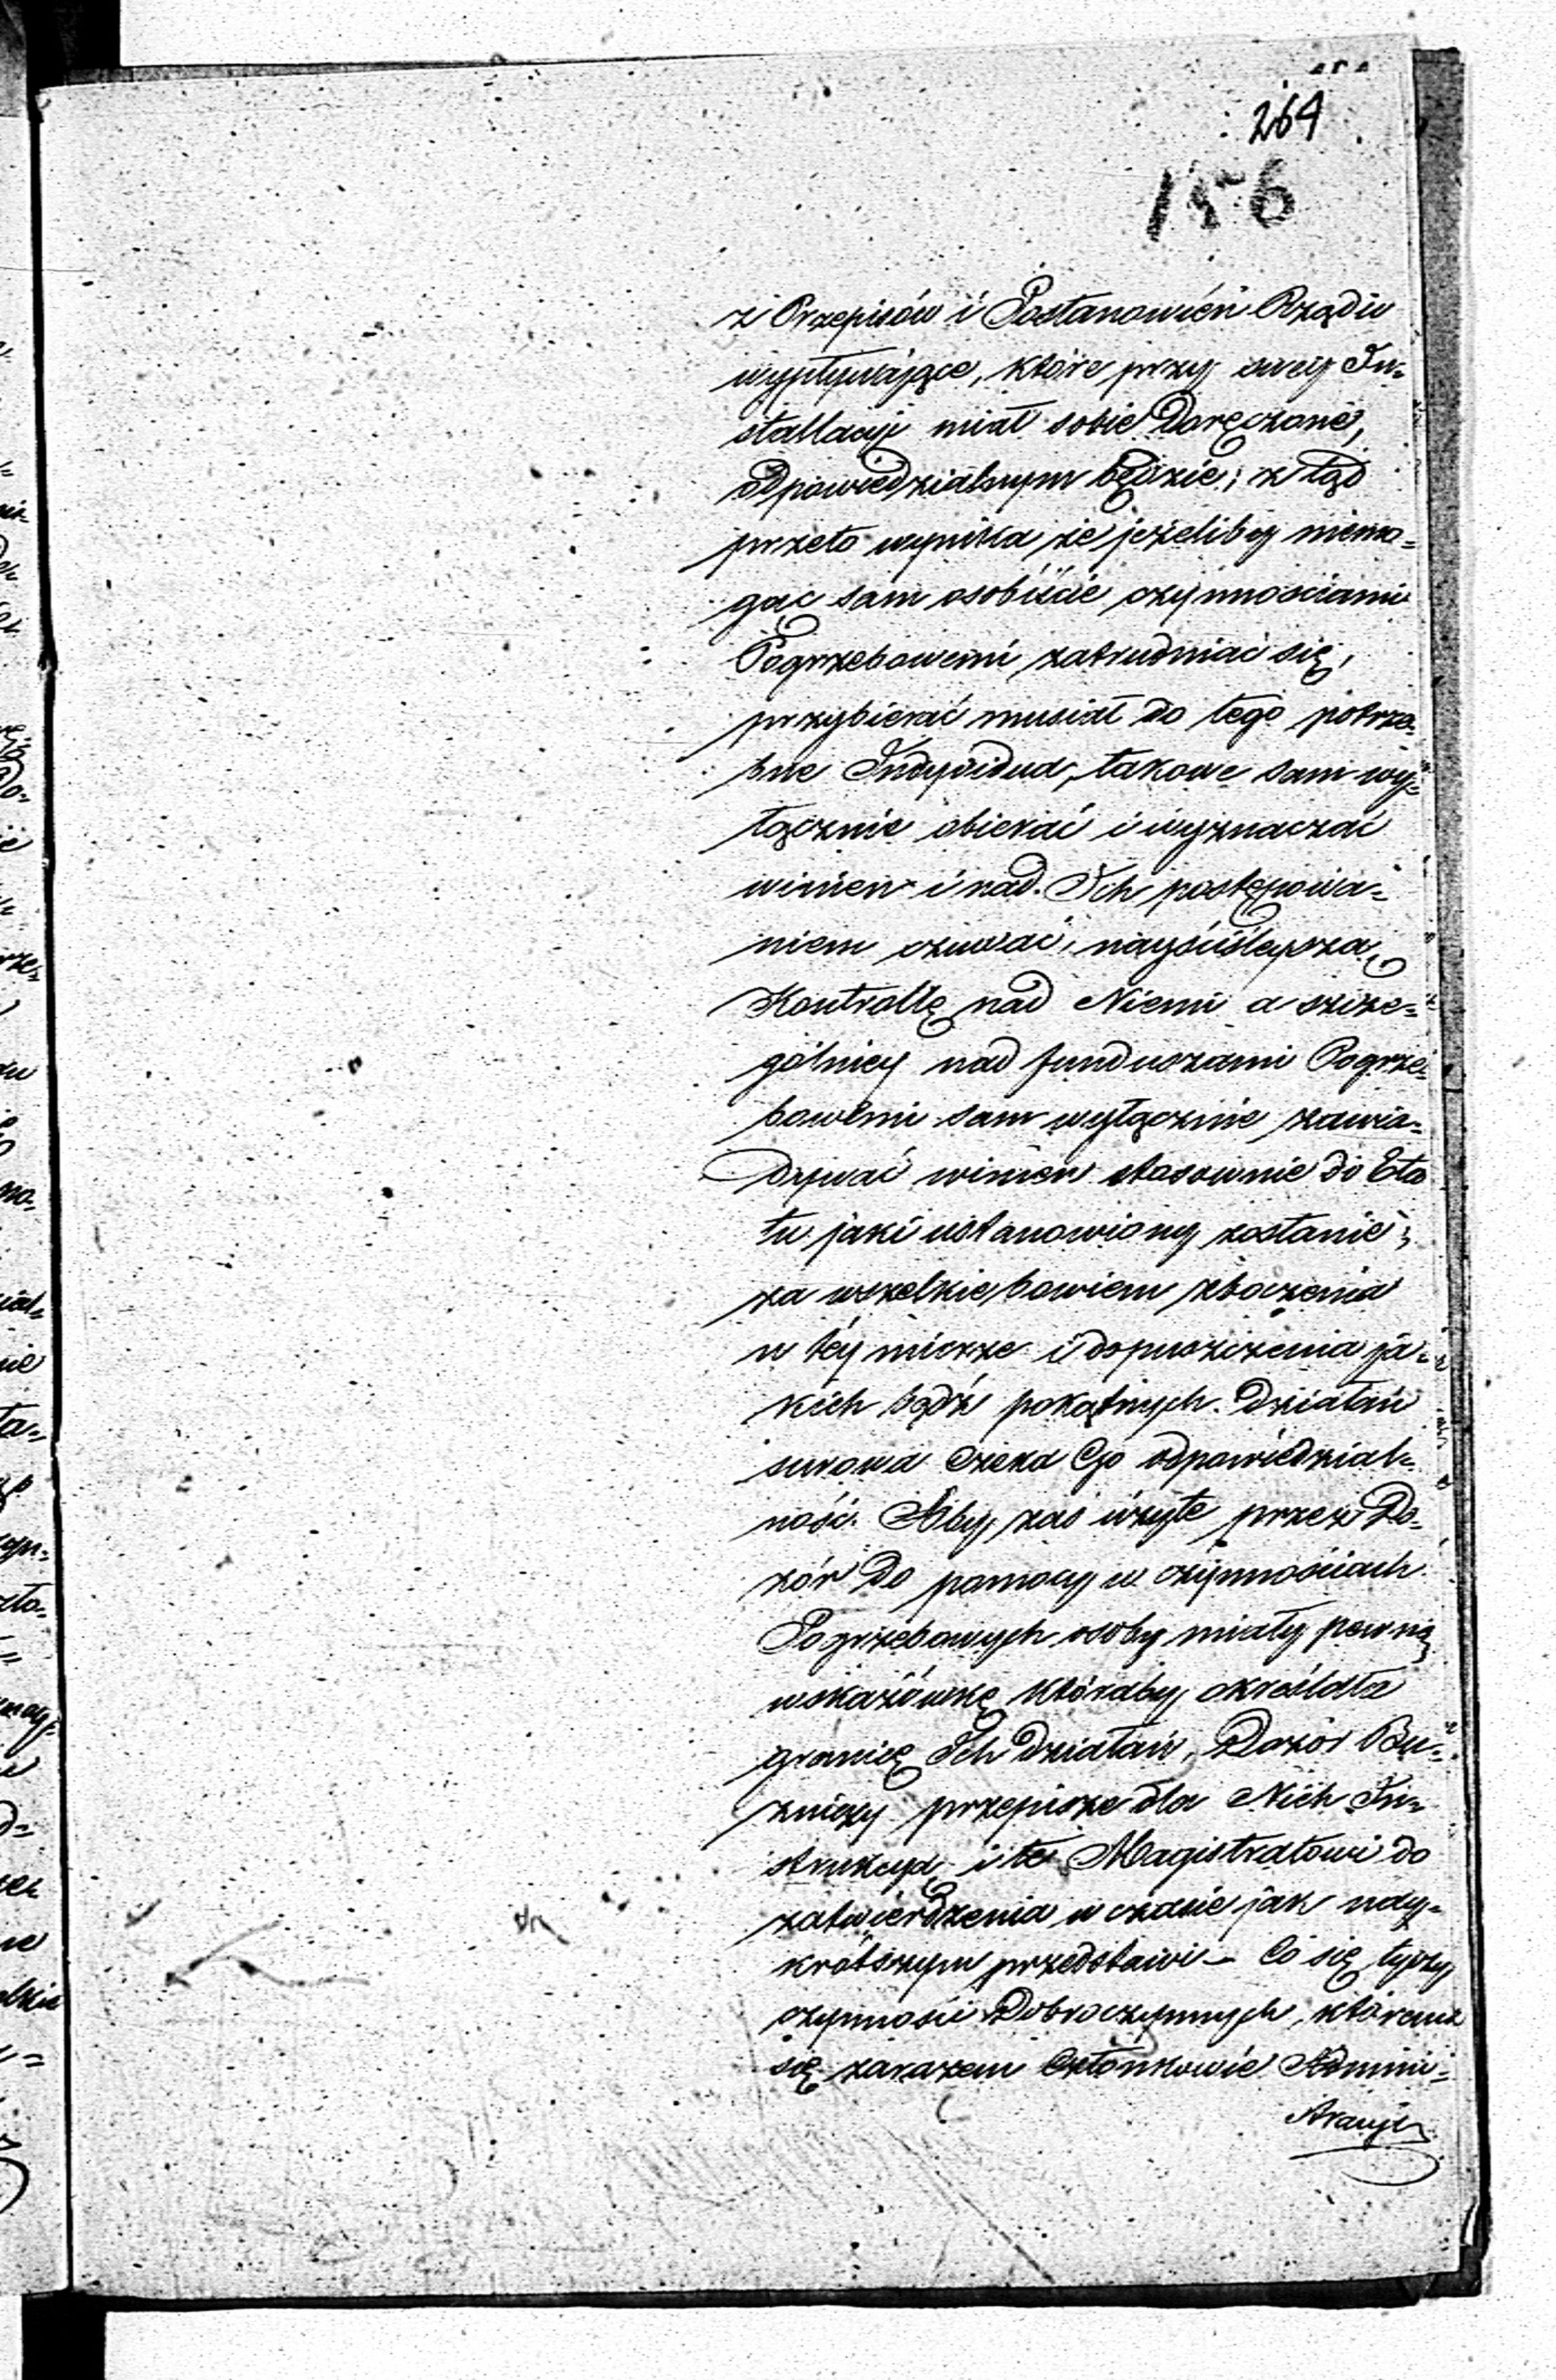 264
156
z Przepisów i Postanowień Rządu
wypływające, które przy swey In=
stallacyi miał sobie Doręczone,
odpowiedzialnym będzie; z tąd
przeto wynika że jeżeliby niemo=
gąc sam osobiście czynnościami
Pogrzebowemi zatrudniać się,
przybierać musiał do tego potrze=
bne Indywidua, takowe sam wy=
łącznie obierać i wyznaczać
winien i nad Ich postępowa=
niem czuwać, nayściśleyszą
Kontrollę nad Niemi a szcze=
gólniey nad funduszami Pogrze=
bowemi sam wyłącznie zawia=
dywać winien stosownie do Eta
tu jaki ustanowiony zostanie;
za wszelkie bowiem zboczenia
w téy mierze i dopuszczenia ja=
kich bądź pokątnych działań
surowa czeka Go odpowiedzial=
ność. Aby zaś użyte przez Do=
zór do pomocy w czynnościach
Pogrzebowych osoby miały pewną
wskazówkę któraby określała
granicę Ich działań, Dozór Bu=
źniczy przepisze dla Nich In=
strukcyą i tę Magistratowi do
zatwierdzenia w czasie jak nay=
krótszym przedstawi – Co się tyczy
czynności Dobroczynnych, któremi
się zarazem Członkowie Admini=
stracyi